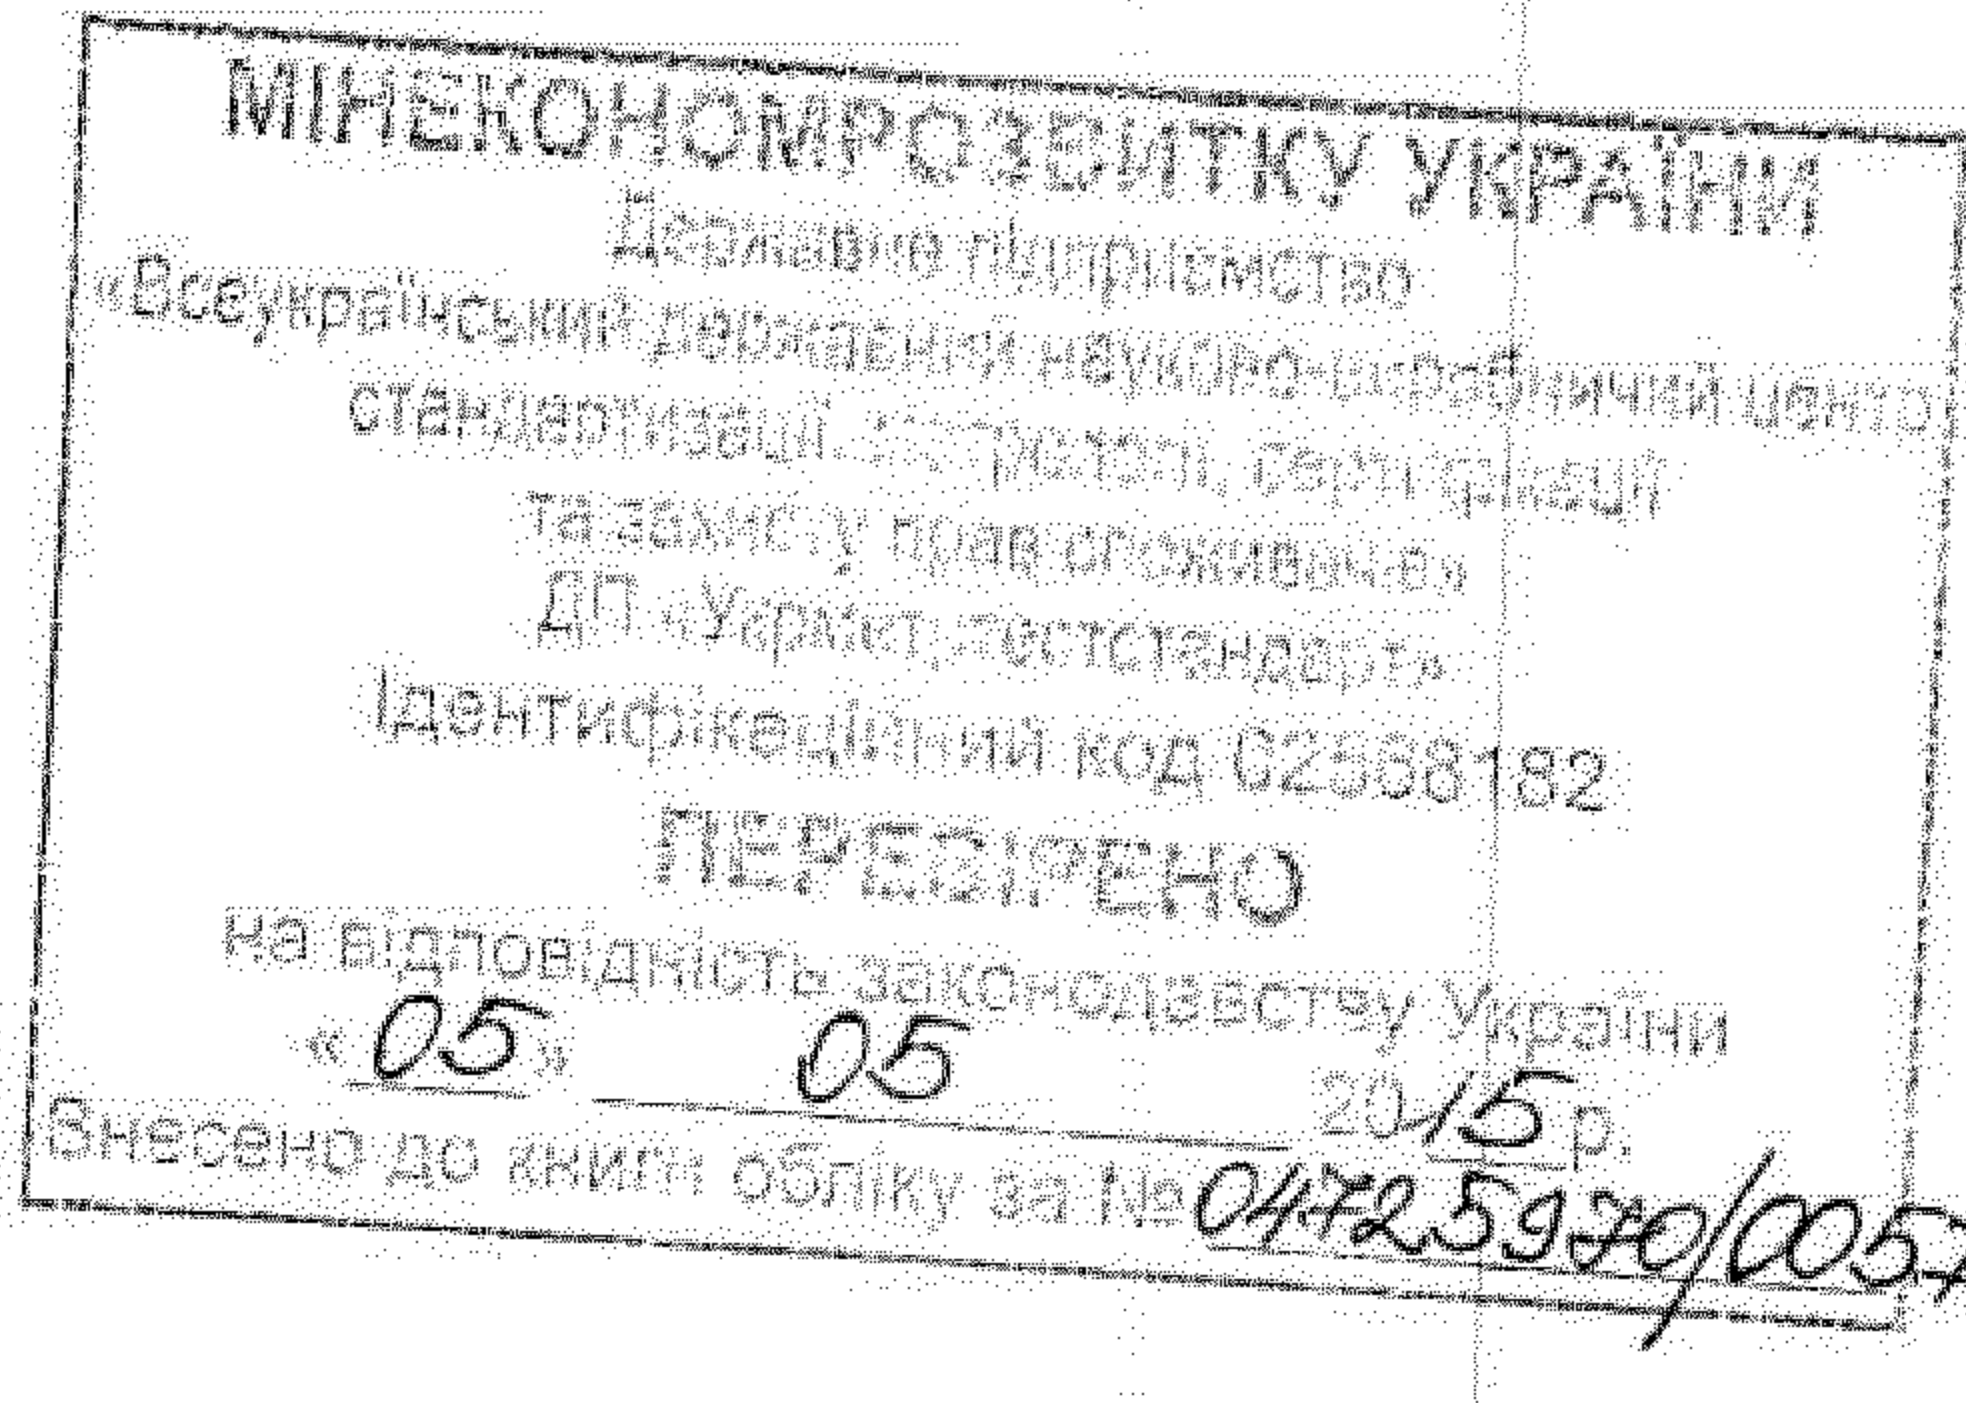 МІНЕКОНОМРОЗВИТКУ УКРАЇНИ
Державне підприємство
«Всеукраїнський державний науково-виробничий центр
стандартизації, метрології, сертифікації
та захисту прав споживачів»
ДП «Укрметртестстандарт»
Ідентифікаційний код 02568182
ПЕРЕВІРЕНО
на відповідність законодавству України
« 05 » 05 2015 р.
Внесено до книги обліку за № 04725970/0057